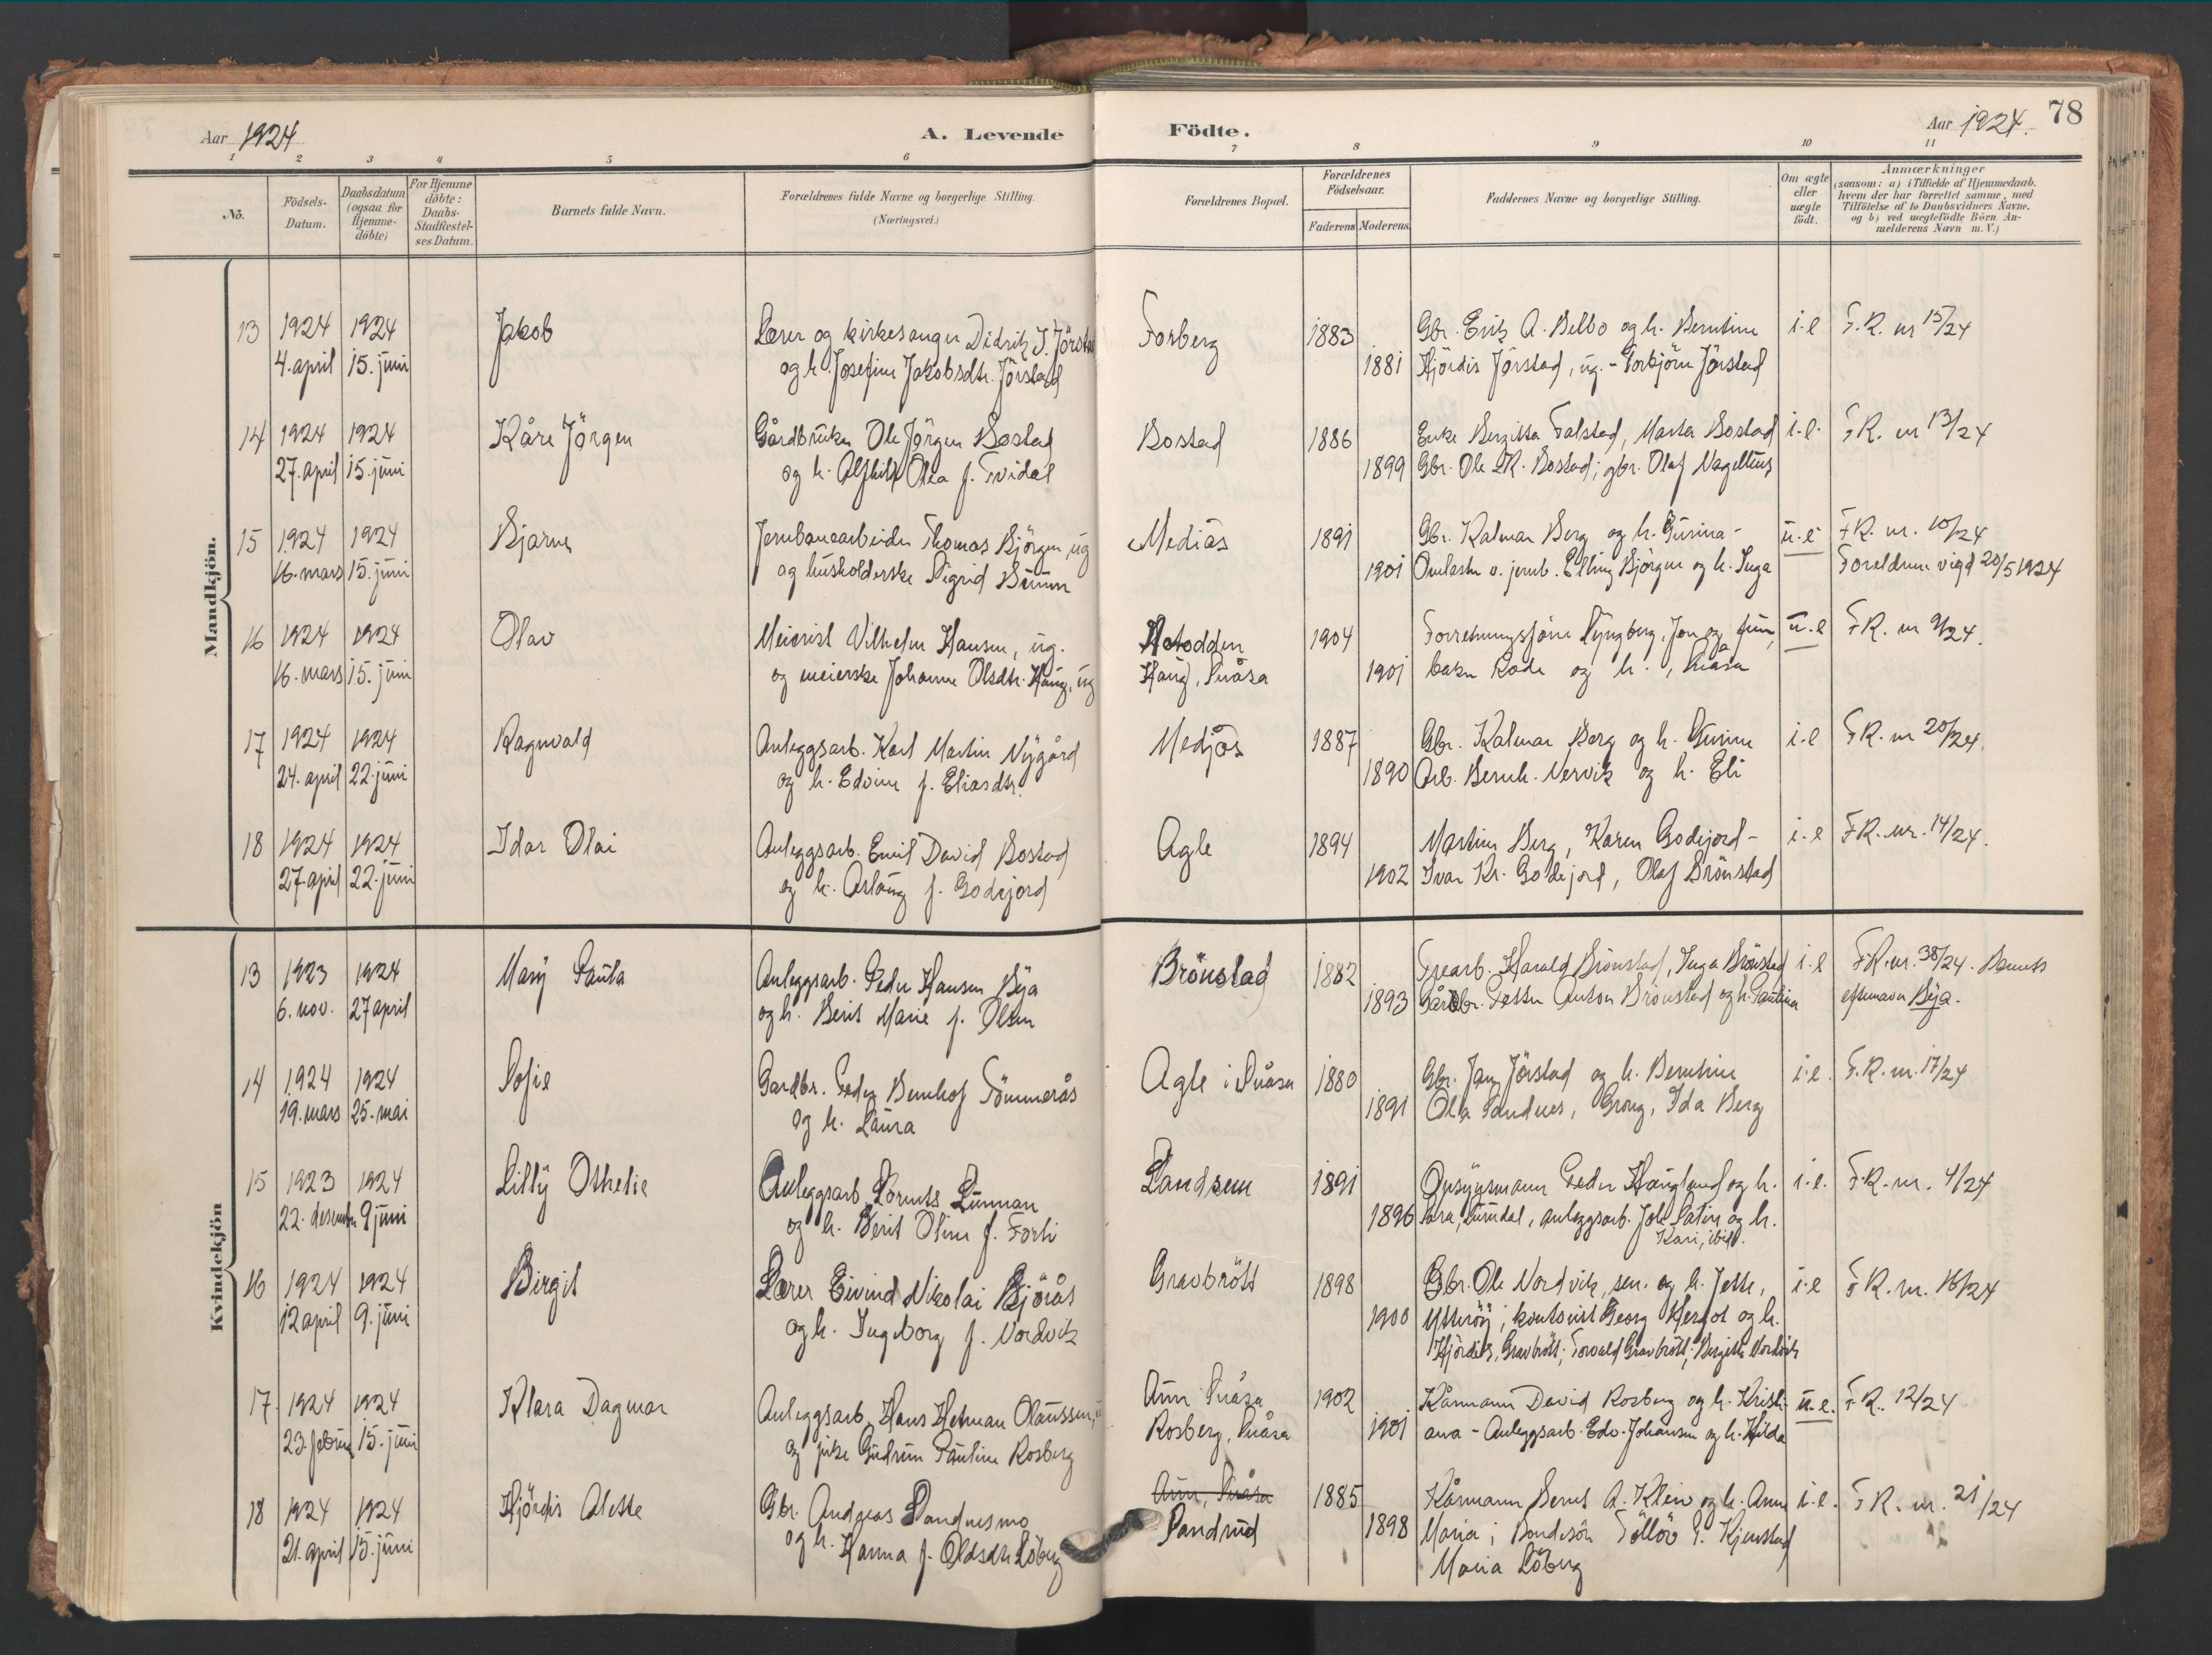 Aar 1924
A. Levende Födte.
Aar 1924. 78
1 2 3 4 5 6 7 8 9 10 11
No.
Födsels-Datum.
Daabsdatum (ogsaa for Hjemme-döbte)
For Hjemme döbte: Daabs-Stadfæstel-ses Datum.
Barnets fulde Navn.
Forældrenes fulde Navne og borgerlige Stilling.
(Næringsvei.)
Forældrenes Bopæl.
Forældrenes Födselsaar.
Faderens Moderens
Faddernes Navne og borgerlige Stilling.
Om ægte eller uægte födt.
Anmærkninger
(saasom: a) i Tilfælde af Hjemmedaab,
hvem der har forrettet samme, med
Tilföielse af to Daabsvidners Navne.
og b) ved uegtefödte Börn An-
melderens Navn m.V.)
Mandkjön.
13 1924 1924 Jakob Lærer og kirkesanger Didrik J. Jörstad Forberg 1883 Gbr. Erik A. Belbo og h. Berntine i.e F.R. nr 15/24
4. april 15. juni og h. Josefine Jakobsdtr. Jörstad 1881 Hjördis Jörstad, ug. - Torbjörn Jörstad
14 1924 1924 Kåre Jörgen Gårdbruker Ole Jörgen Bostad Bostad 1886 Enke Bergitta Falstad, Marta Bostad i.e. F.R. nr 13/24
27. april 15. juni og h. Alfhild Olea f. Tvidal 1899 Gbr. Ole K. Bostad; gbr. Olaf Nagelhus
15 1924 1924 Bjarne Jernbanearbeider Thomas Björgen, ug Mediås 1891 Gbr. Kalmar Berg og h. Gurina - u.e F.R. nr. 10/24
16. mars 15. juni og husholderske Sigrid Buum 1901 Opsynsm. v. jernb. Elling Björgen og h. Inga Foreldrene vigd 20/5 1924
16 1924 1924 Olav Meierist Vilhelm Hansen, ug. Notodden 1904 Forretningsförer Lyngberg, Jon og frue, u.e F.R. nr 9/24.
16. mars 15. juni og meierske Johanne Olsdtr. Haug, ug Haug, Snåsa 1901 baker Rode og h., Snåsa
17 1924 1924 Ragnvald Anleggsarb. Karl Martin Nygård Medjås 1887 Gbr. Kalmar Berg og h. Gurine i.e F.R. nr 20/24.
24. april 22. juni og h. Edvine f. Eliasdtr. 1890 Arb. Bernh. Nervik og h. Eli
18 1924 1924 Idar Olai Anleggsarb. Emil David Bostad Agle 1894 Martin Berg, Karen Godejord - i.e F.R. nr. 14/24.
27. april 22. juni og h. Aslaug f. Godejord 1902 Ivar Kr. Godejord, Olaf Brönstad
Kvindekjön
13 1923 1924 Mary Paula Anleggsarb. Peder Hansen Bya Brönstad 1882 Trearb. Harald Brönstad, Inga Brönstad i.e F.R. nr. 38/24. Barnets
6. nov. 27 april og h. Berit Marie f. Olsen 1893 Gårdbr. Petter Anton Brönstad og h. Paulina efternavn Bya.
14 1924 1924 Sofie Gardbr. Peder Bernhof Tömmerås Agle i Snåsa 1880 Gbr. Jan Jörstad og h. Berntine i.e. F.R. nr. 17/24
19. mars 25. mai og h. Laura 1891 Ola Sandnes, Grong, Ida Berg
15 1923 1924 Lilly Othelie Anleggsarb. Lornts Lunnan Landsem 1891 Opsynsmann Peder Haugland og h. i.e. F.R. nr. 4/24
22. desember 9 juni og h. Berit Oline f. Forli 1896 Sara, Surndal, anleggsarb. Joh. Satin og h.
Kari, ibid.
16 1924 1924 Birgit Lærer Eivind Nikolai Björäs Gravbrött 1898 Gbr. Ole Nordvik, sen. og h. Jette, i.e F.R. nr. 16/24
12 april 9. juni og h. Ingeborg f. Nordvik 1900 Ytteröy; kontorist Georg Hergot og h.
Hjördis, Gravbrött; Torvald Gravbrött; Bergitte Nordvik
17. 1924 1924 Klara Dagmar Anleggsarb. Hans Herman Olaussen, Aun Snåsa 1902 Kårmann David Rosberg og h. Kristi- u.e. F.R. 12/24
23. februar 15. juni og pike Gudrun Pauline Rosberg Rosberg, Snåsa 1901 ana - Anleggsarb. Edv. Johansen og h. Hilda
18 1924 1924 Hjördis Alette Gbr. Andreas Sandnesmo Aun, Snåsa 1885 Kårmann Bernt A. Klein og h. Anne i.e. F.R. nr. 21/24
21. april 15. juni og h. Hanna f. Oldsdtr Löberg Sandrud 1898 Maria; Bondesön Tollöv E. Kjenstad
Maria Löberg